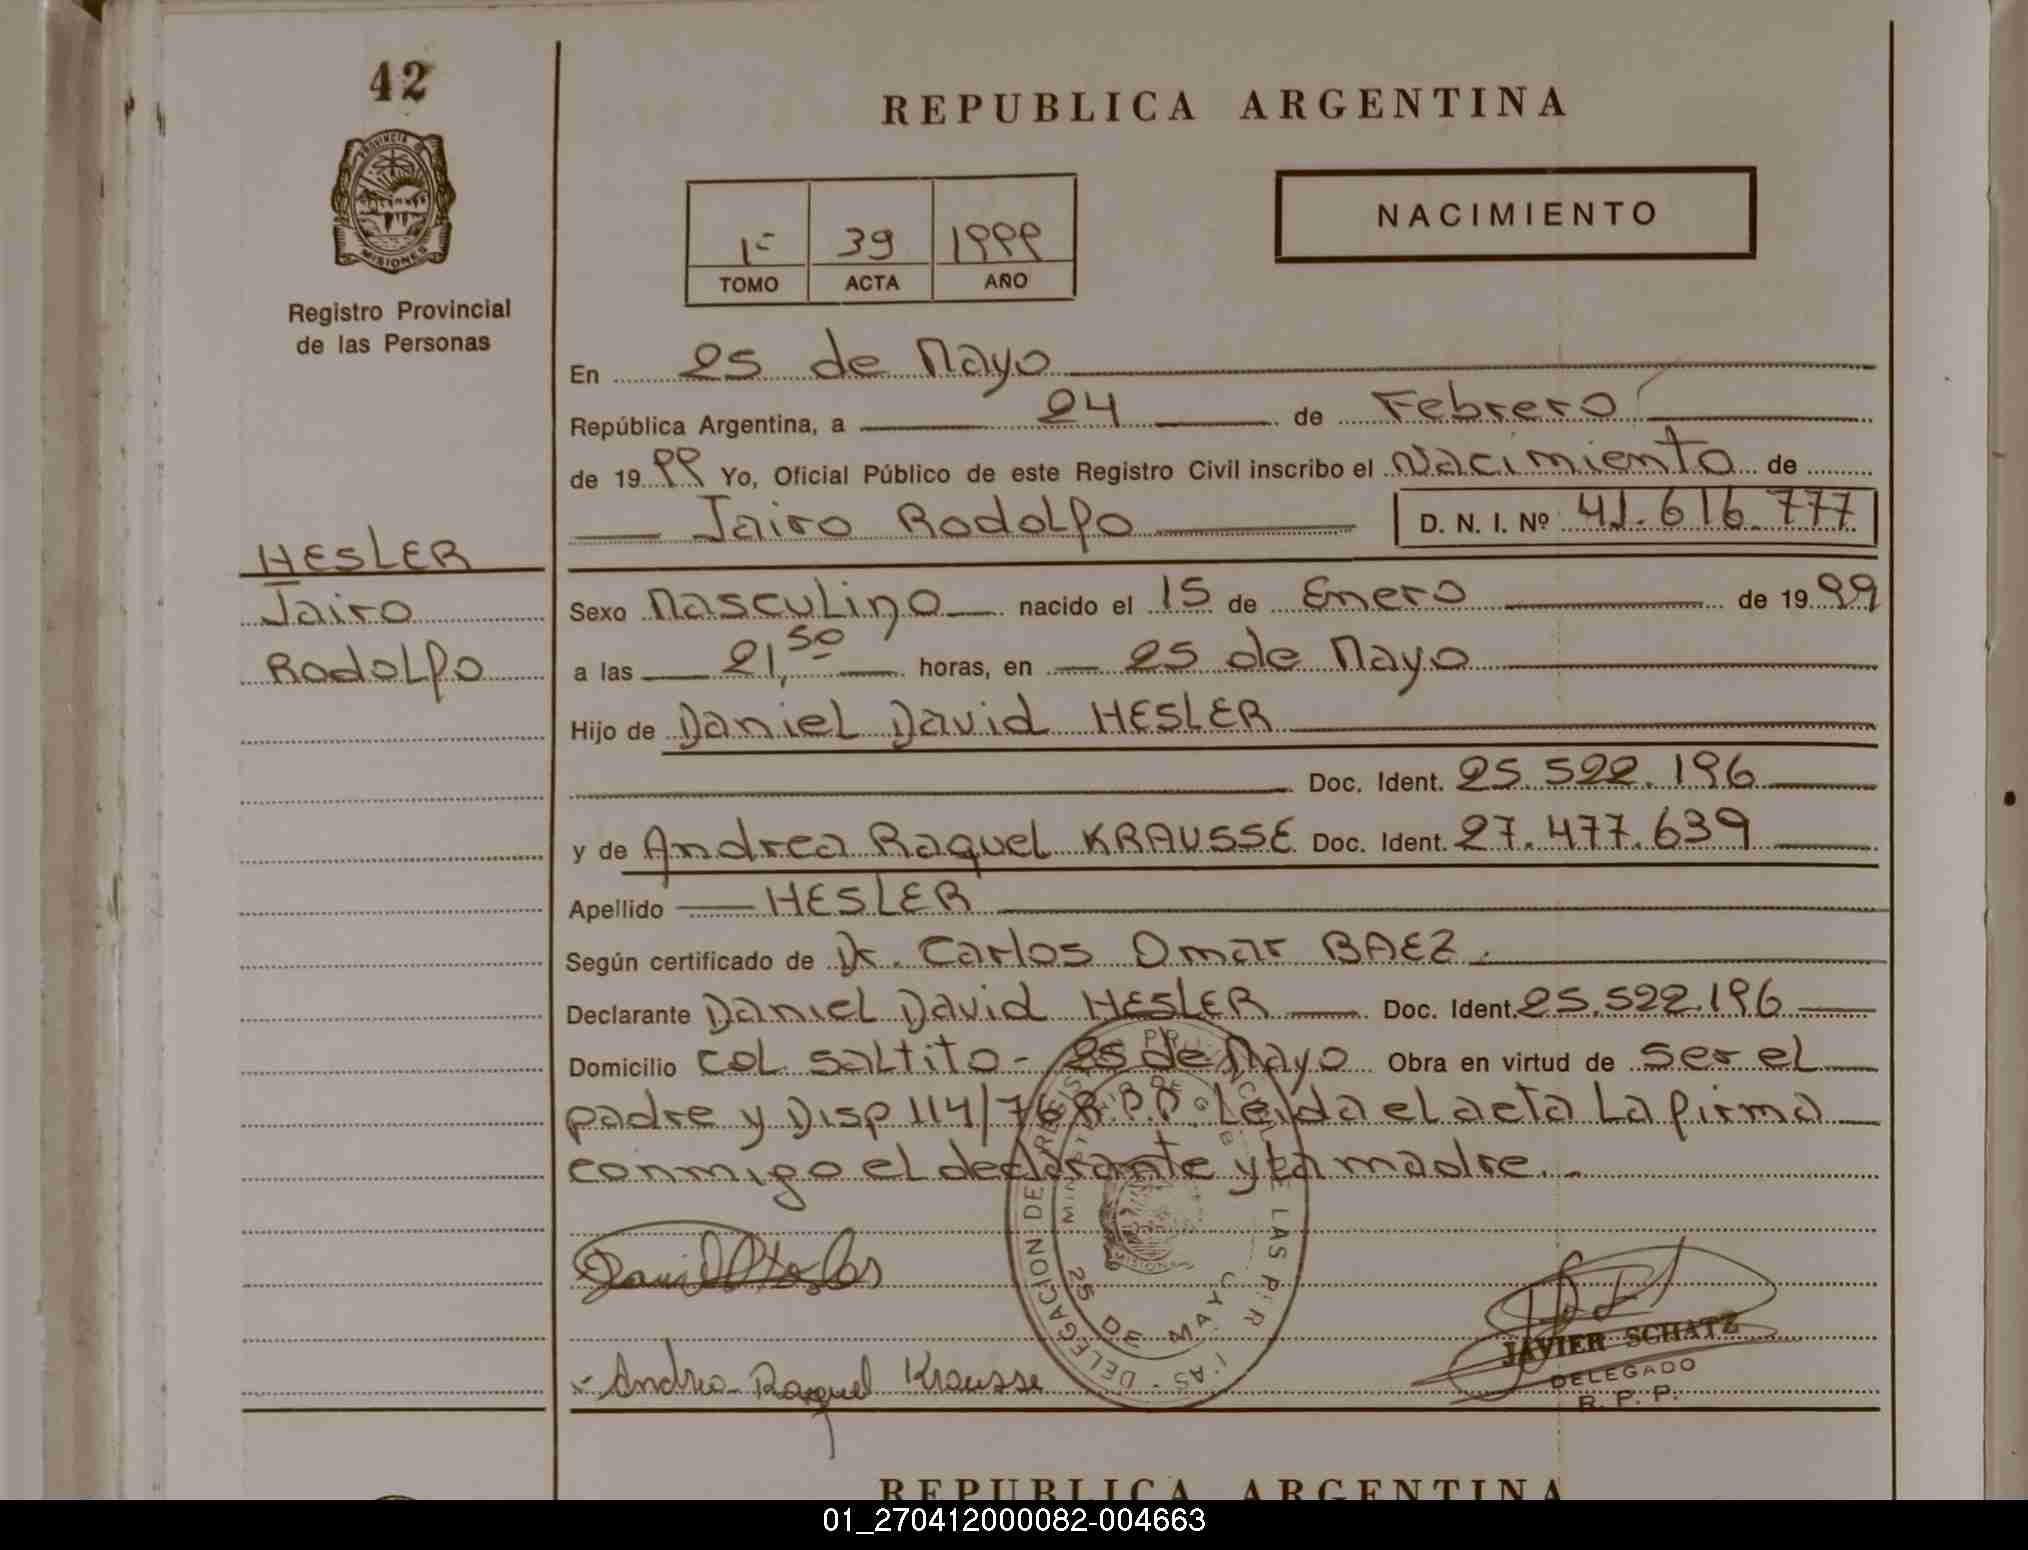 42
REPUBLICA ARGENTINA
PROVINCIA DE
MISIONES
NACIMIENTO
1º 39 1999
TOMO ACTA AÑO
Registro Provincial
de las Personas
En 25 de Mayo
República Argentina, a 24 de Febrero
de 1999 Yo, Oficial Público de este Registro Civil inscribo el Nacimiento de
Jairo Rodolfo D. N. I. Nº 41.616.777
HESLER
Jairo
Rodolfo
Sexo Masculino nacido el 15 de Enero de 1999
a las 21,50 horas, en 25 de Mayo
Hijo de Daniel David HESLER
Doc. Ident. 25.522.196
y de Andrea Raquel KRAUSSE Doc. Ident. 27.477.639
Apellido HESLER
Según certificado de Dr. Carlos Omar BAEZ.
Declarante Daniel David HESLER Doc. Ident. 25.522.196
Domicilio Col. Saltito - 25 de Mayo Obra en virtud de ser el
padre y Disp 114/76 R.P.P. Leida el acta La firma
conmigo el declarante y la madre.
25 DE MAYO
Andrea Raquel Krausse
JAVIER SCHATZ
DELEGADO
R. P. P.
REPUBLICA ARGENTINA
01_270412000082-004663